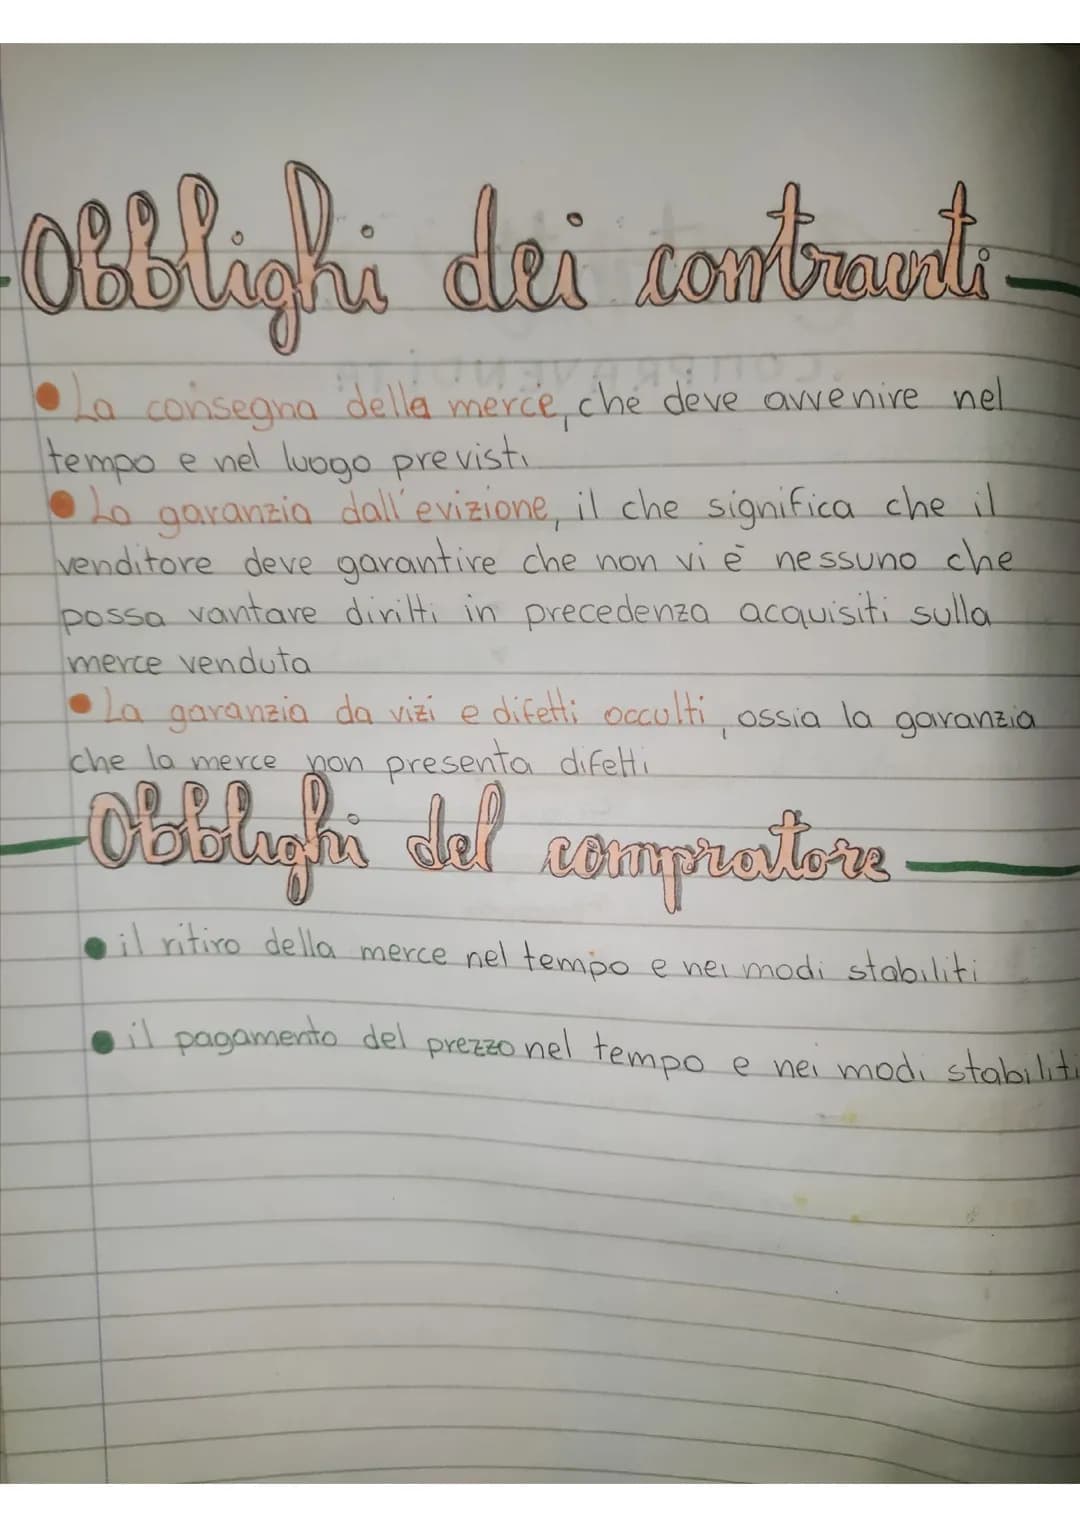 Obblighi dei contraenti
• La consegna della merce, che deve avvenire nel
tempo e nel luogo previsti
• La garanzia dall'evizione, il che significa che il
venditore deve garantire che non vi è nessuno che
possa vantare diritti in precedenza acquisiti sulla
merce venduta
• La garanzia da vizi e difetti occulti, ossia la garanzia
che la merce non presenta difetti
Obblighi del compratore
• il ritiro della merce nel tempo e nei modi stabiliti
• il pagamento del prezzo nel tempo e nei modi stabiliti